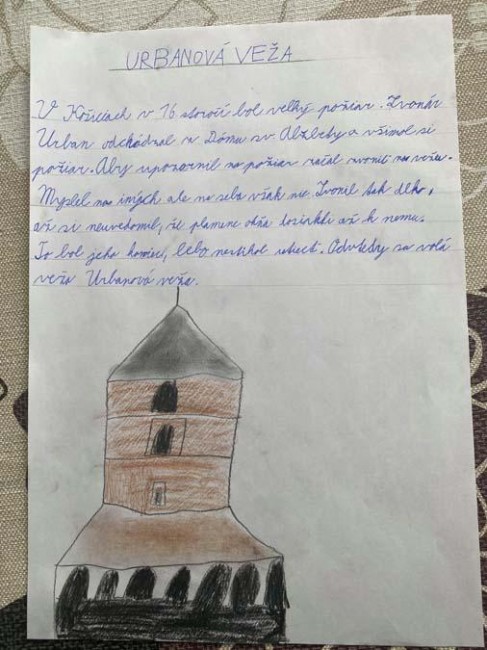 URBANOVÁ VEŽA
V Košiciach v 16 storočí bol veľký požiar. Zvonár
Urban odchádzal z Dómu sv Alžbety a všimol si
požiar. Aby upozornil na požiar začal zvoniť na vežu.
Myslel na iných ale na seba však nie. Zvonil tak dlho,
až si neuvedomil, že plamene ohňa dosiahli až k nemu.
To bol jeho koniec, lebo nestihol utiecť. Odvtedy sa volá
veža Urbanová veža.